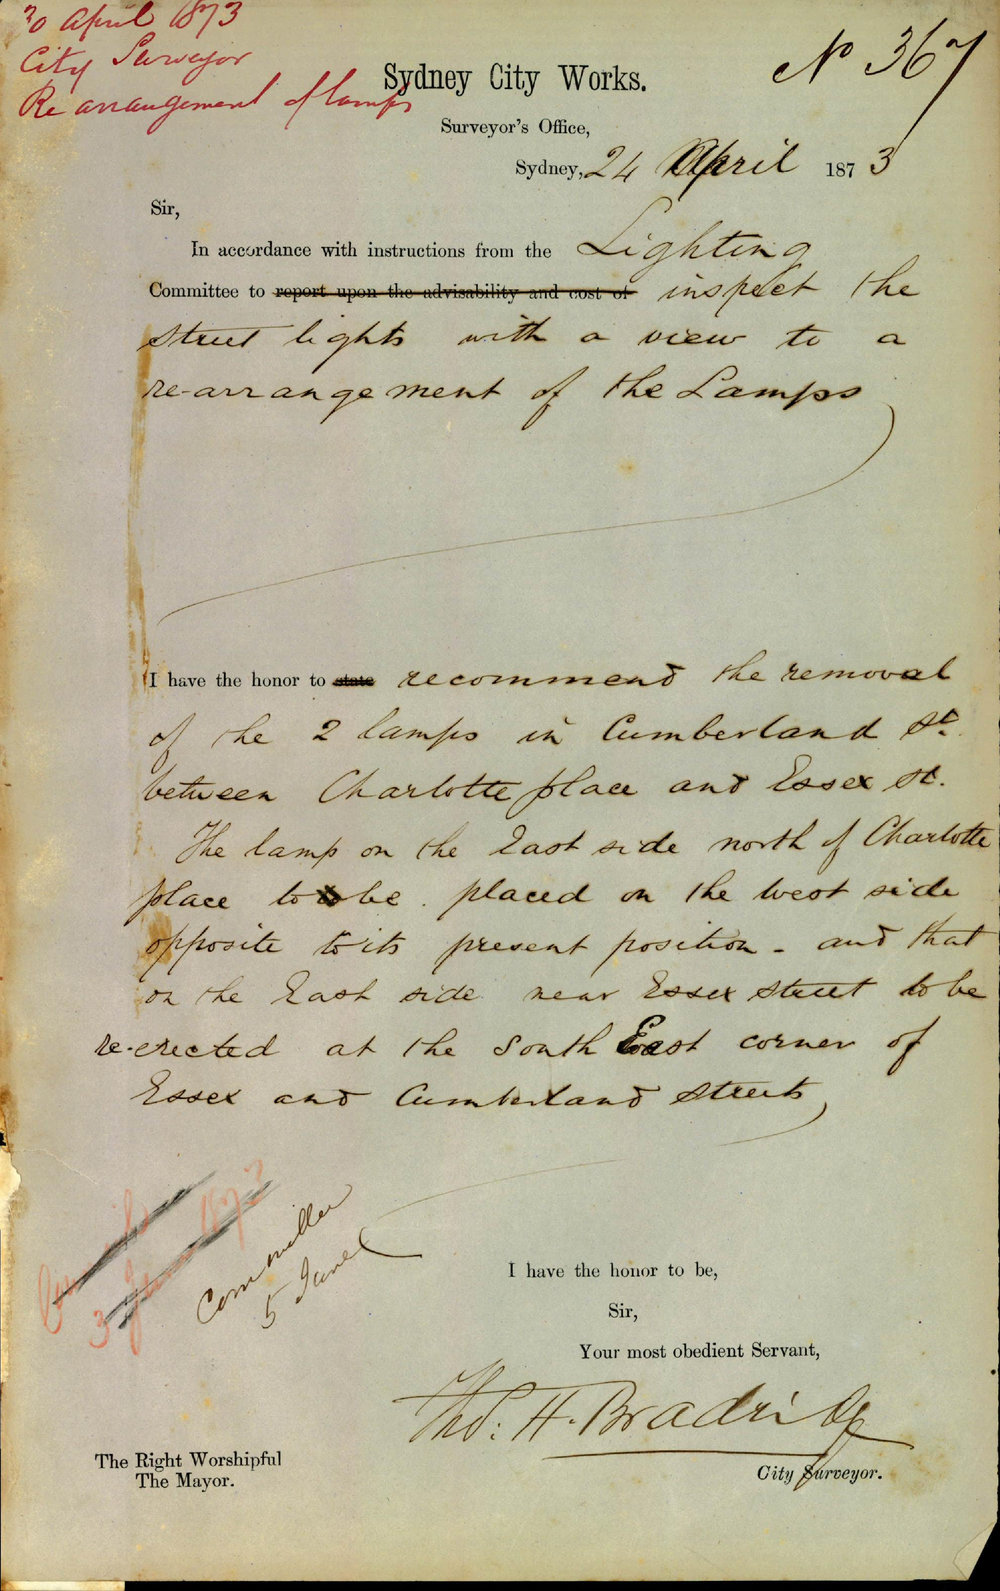 30 April 1873
City Surveyor
Re arrangement of lamps
No 367
Sydney City Works.
Surveyor's Office,
Sydney, 24 April 1873
Sir,
In accordance with instructions from the Lighting
Committee to report upon the advisability and cost of inspect the
street lights with a view to a
re-arrangement of the Lamps
I have the honor to state recommend the removal
of the 2 lamps in Cumberland St.
between Charlotte place and Essex st.
The lamp on the East side north of Charlotte
place to be placed on the west side
opposite to its present position - and that
on the East side near Essex street to be
re-erected at the South East corner of
Essex and Cumberland streets
3 June 1873
Committee
5 June
I have the honor to be,
Sir,
Your most obedient Servant,
Tho: H. Bradridge
City Surveyor.
The Right Worshipful
The Mayor.